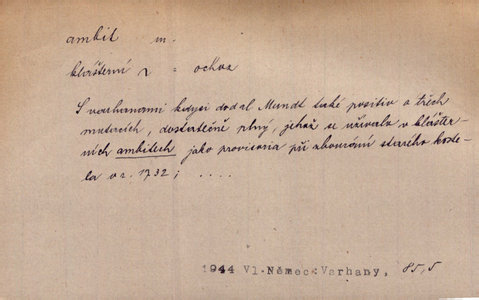 ambit m.
klášterní ~ = ochoz
S varhanami kdysi dodal Mundt také positiv o třech
mutacích, dostatečně plný, jehož se užívalo v klášter-
ních ambitech jako provisoria při zbourání starého koste-
la v r. 1732; ....
1944 Vl.Němec:Varhany, 85,5